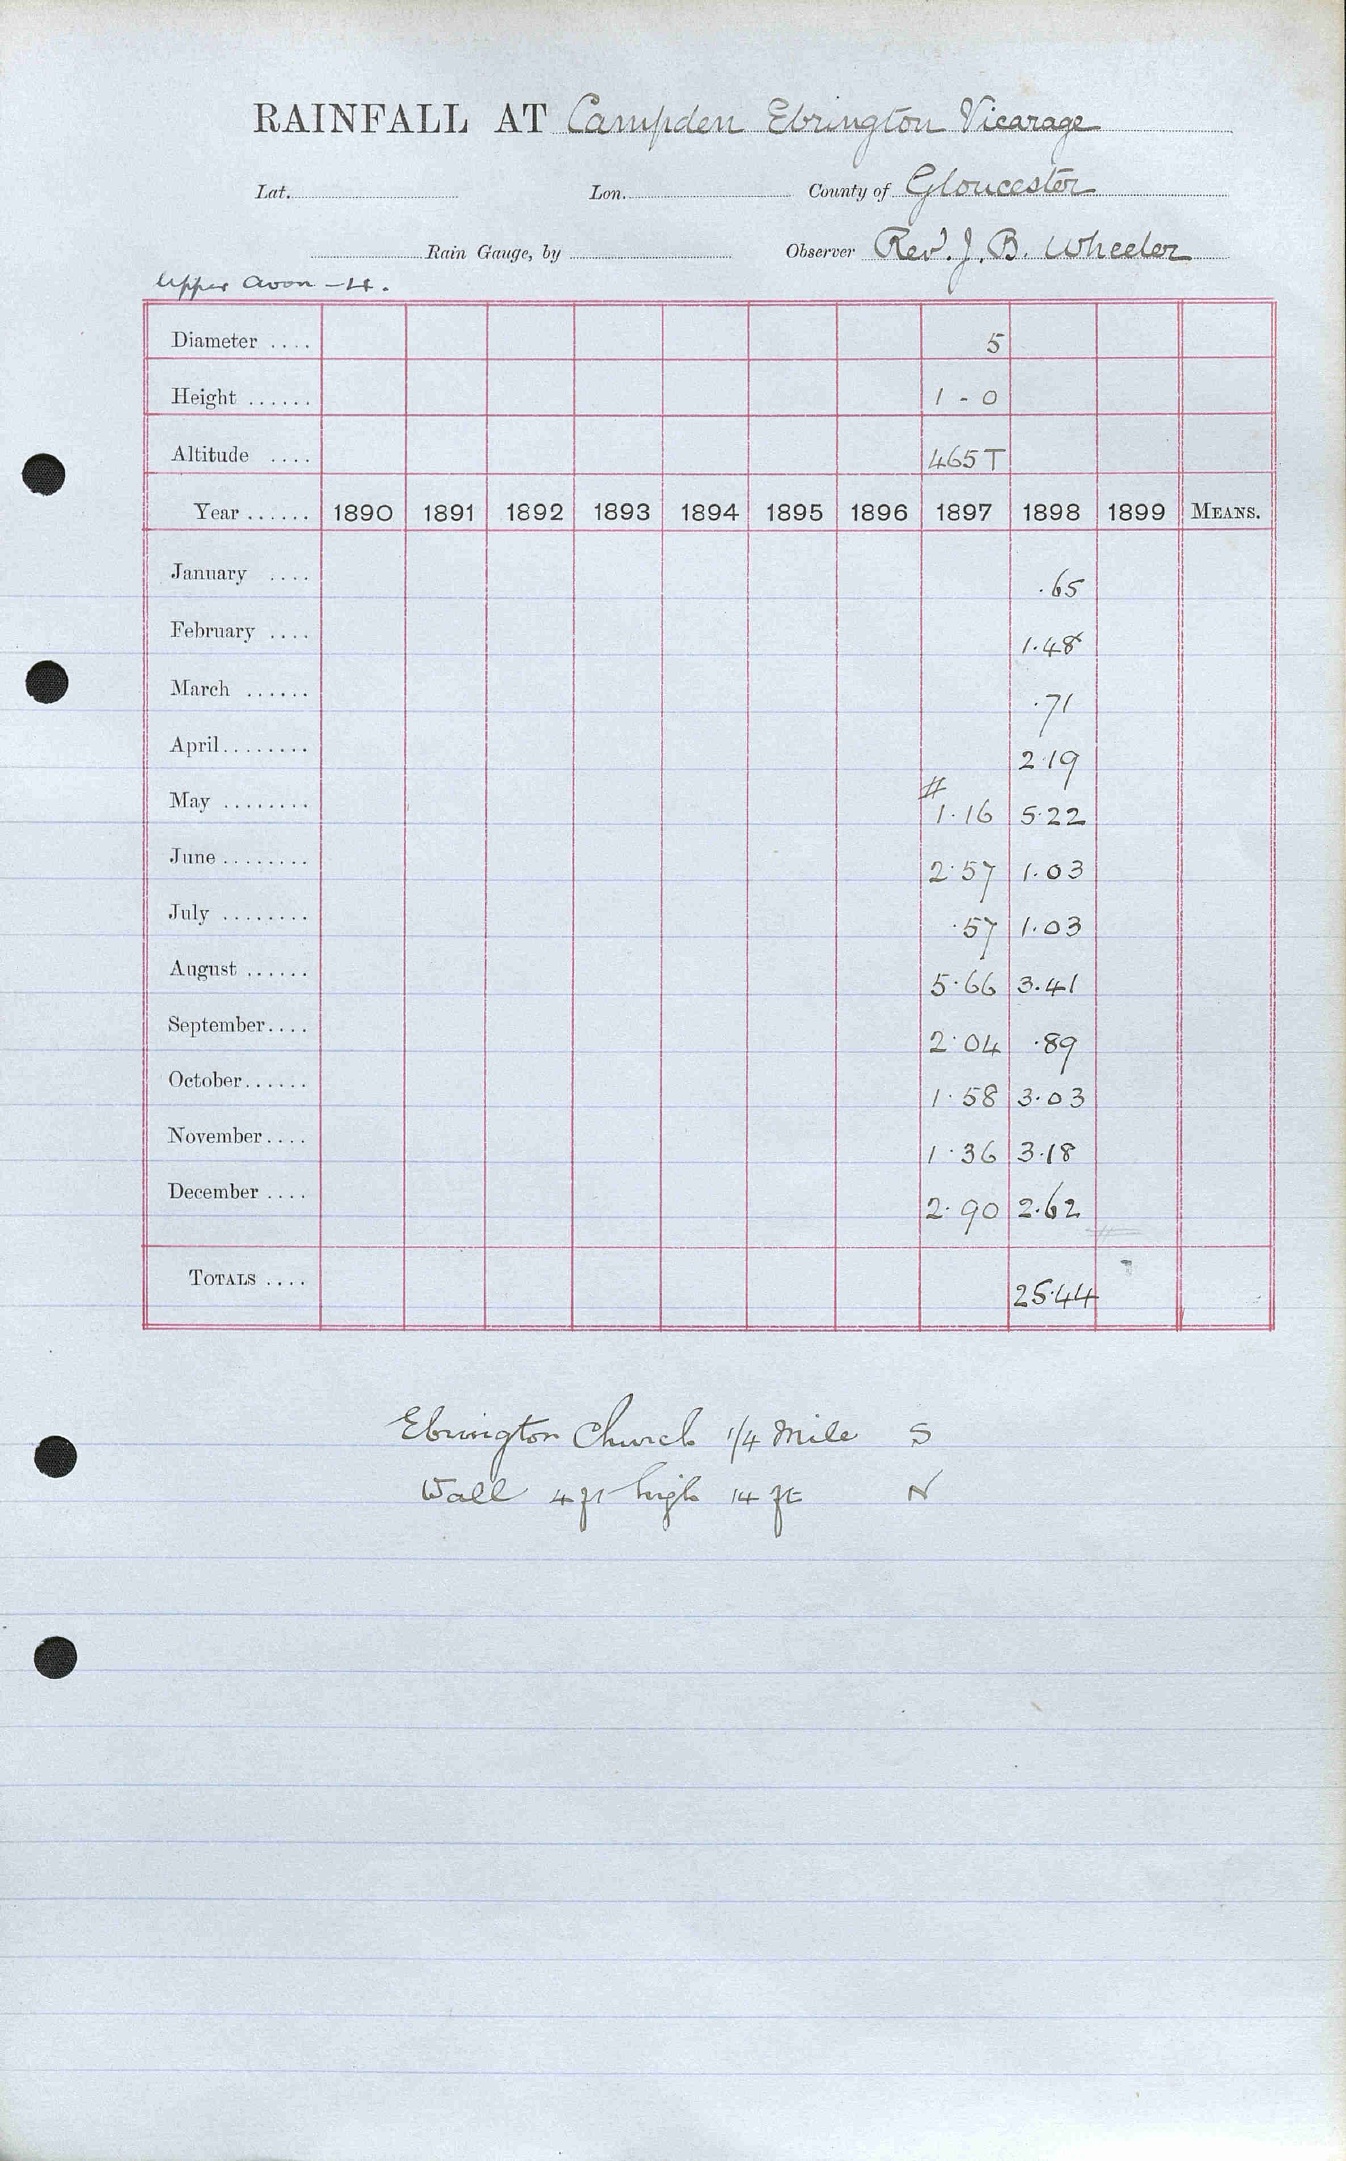 RAINFALL AT Campden Ebrington Vicarage
Lat. Lon. County of Gloucester
Rain Gauge, by Observer Rev. J. B. Wheeler
Upper Avon - 4.
Diameter .... 5
Height ...... 1 - 0
Altitude .... 465 T
Year ...... 1890 1891 1892 1893 1894 1895 1896 1897 1898 1899 MEANS.
January .... .65
February .... 1.48
March ...... .71
April ........ 2.19
#
May ........ 1.16 5.22
June ........ 2.57 1.03
July ........ .57 1.03
August ...... 5.66 3.41
September .... 2.04 .89
October ...... 1.58 3.03
November .... 1.36 3.18
December .... 2.90 2.62
TOTALS .... 25.44
Ebrington Church 1/4 Mile S
Wall 4 ft high 14 ft N